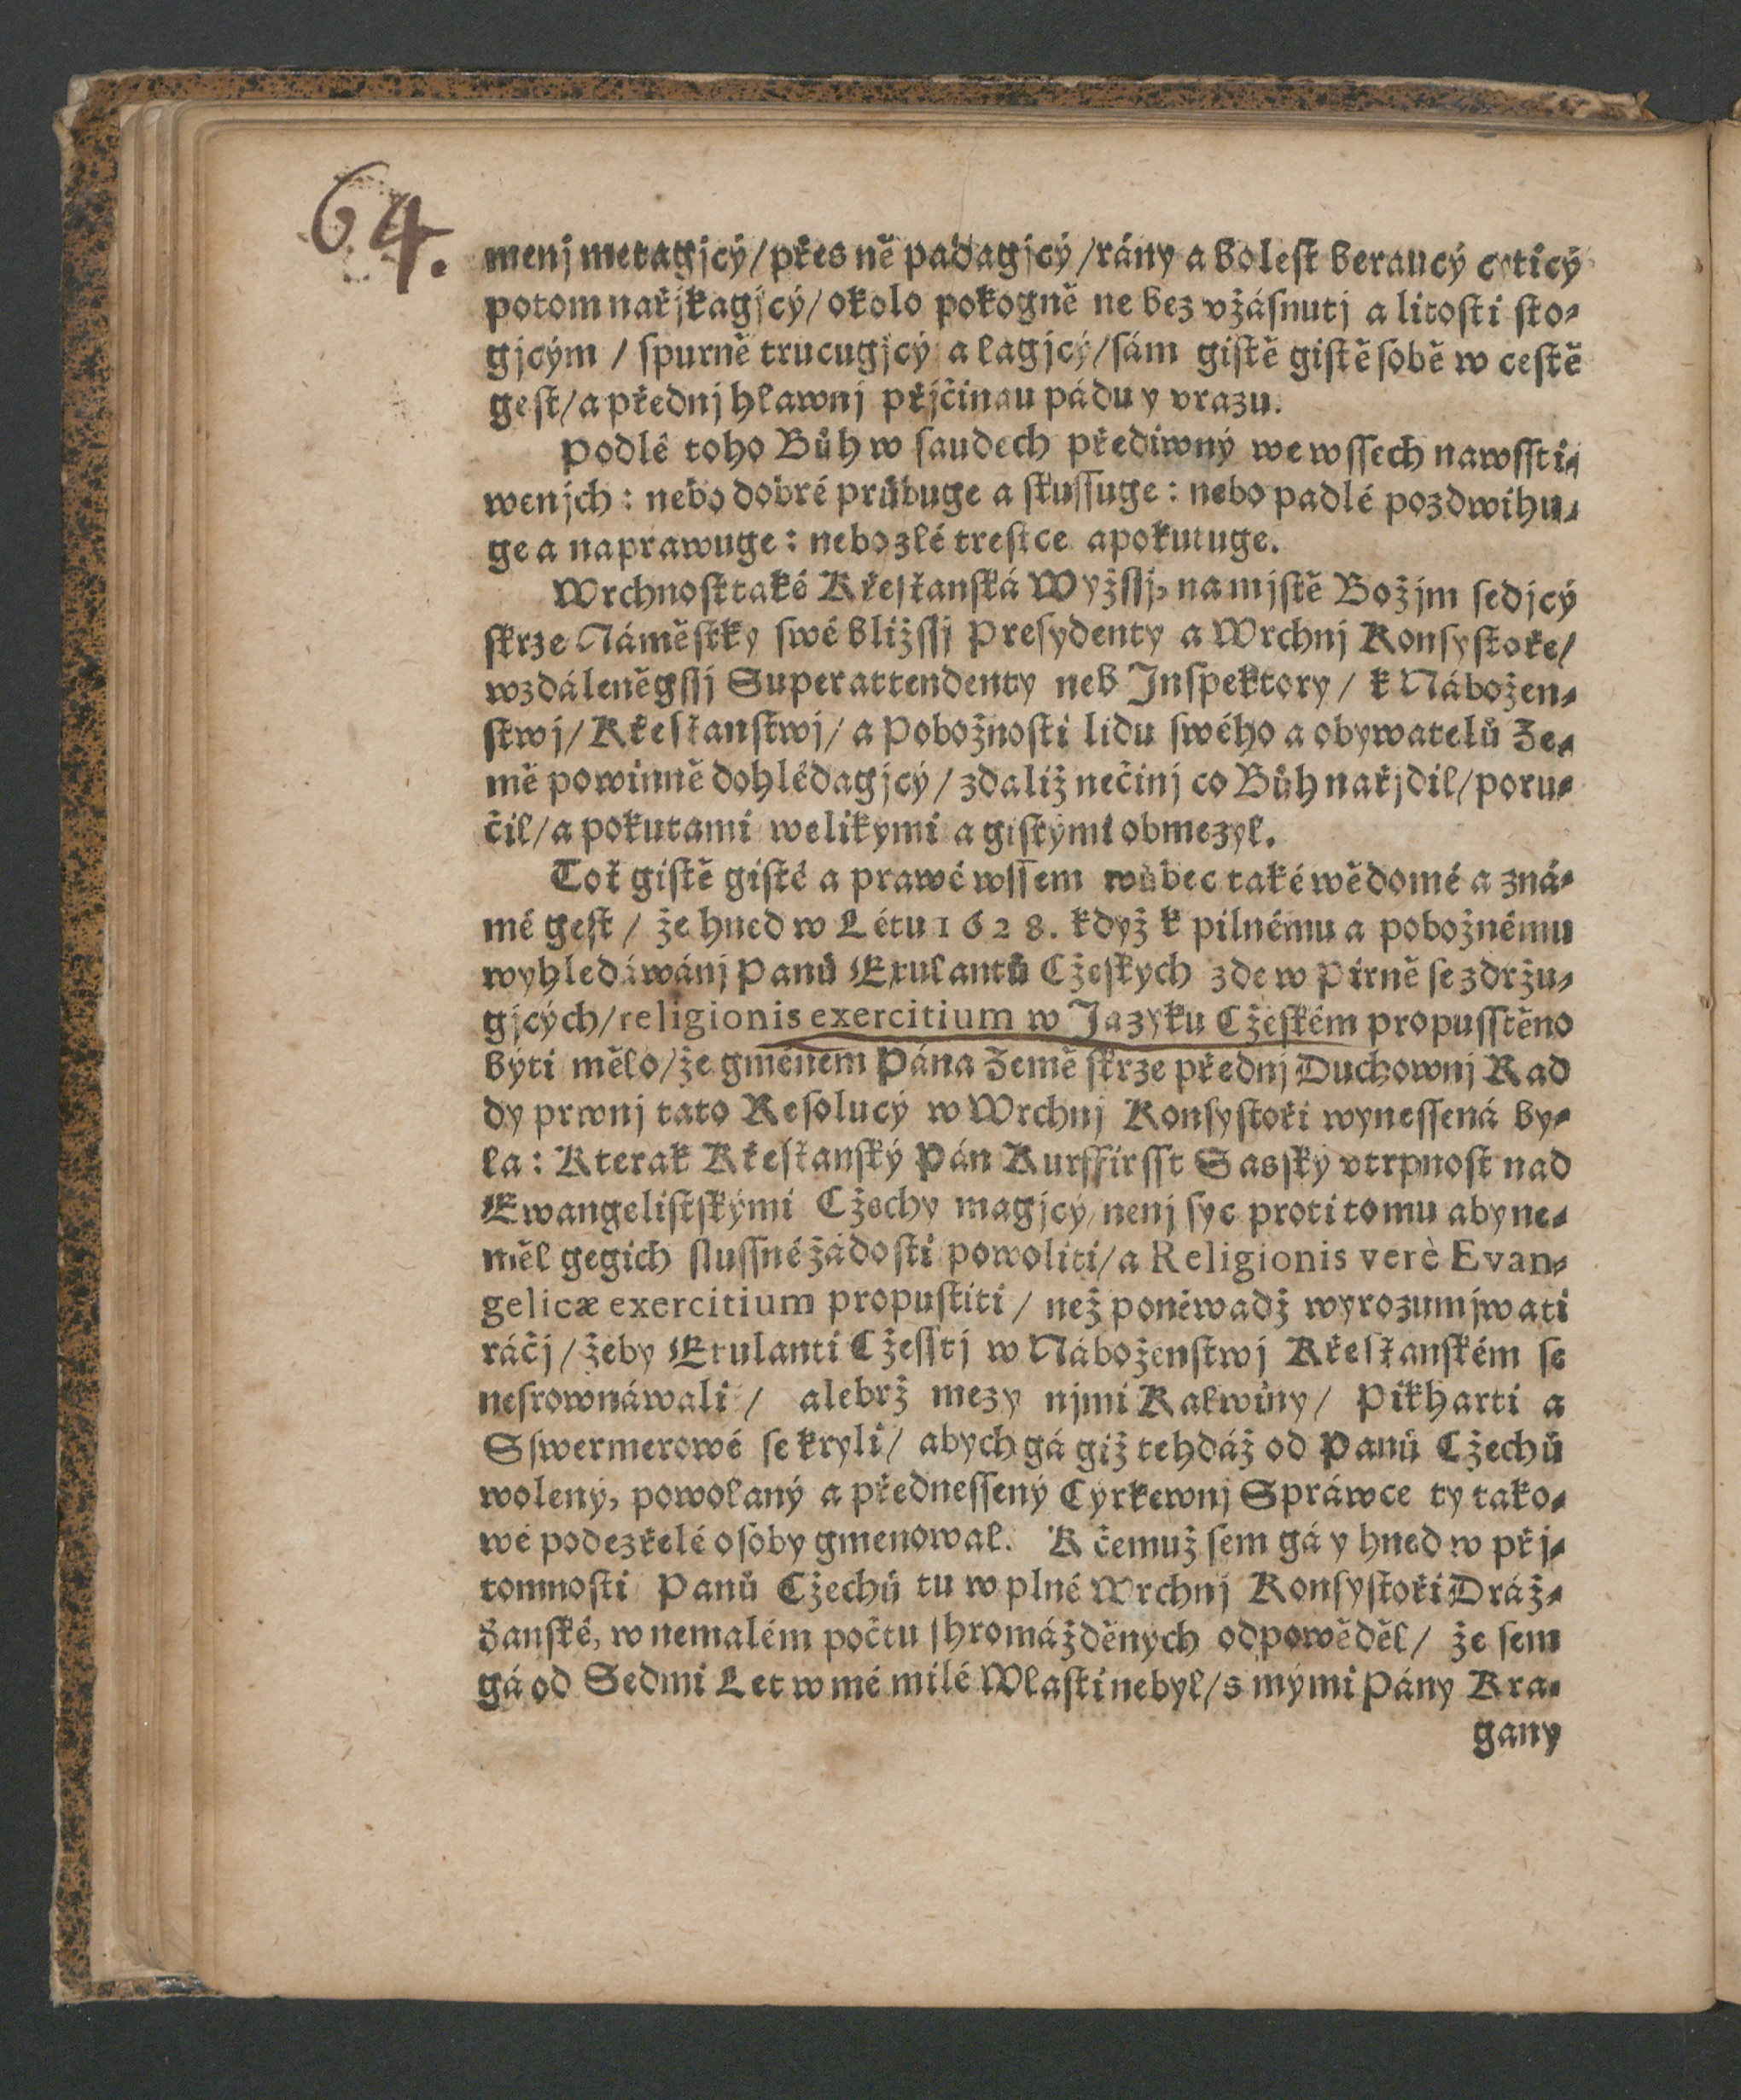 64.
menj metagjcý/přes ně padagjcý/rány a bolest beraucý cýticý
potom nařjkagjcý/okolo pokogně ne bez vžásnutj a litosti sto-
gjcým/spurně trucugjcý a lagjcý/sám gistě gistě sobě w cestě
gest/a přednj hlawnj přjčinau pádu y vrazu.
Podlé toho Bůh w saudech přediwný we wssech nawssti-
wenjch: nebo dobré průbuge a skussuge: nebo padlé pozdwihu-
ge a naprawuge: nebo zlé tresce a pokutuge.
Wrchnost také Křesťanská Wyžssj, na mjstě Božjm sedjcý
skrze Náměstky swé bližssj Presydenty a Wrchnj Konsystoře/
wzdáleněgssj Superattendenty neb Inspektory/k Nábožen-
stwj/Křesťanstwj/a Pobožnosti lidu swého a obywatelů Ze-
mě powinně dohlédagjcý/zdaliž nečinj co Bůh nařjdil/poru-
čil/a pokutami welikými a gistými obmezyl.
Toť gistě gisté a prawé wssem wůbec také wědomé a zná-
mé gest/že hned w Létu 1628. když k pilnému a pobožnému
wyhledáwánj Panů Exulantů Cžeských zde w Pirně se zdržu-
gjcých/religionis exercitium w Jazyku Cžeském propusstěno
býti mělo/že gménem Pána Země skrze přednj Duchownj Rad
dy prwnj tato Resolucý w Wrchnj Konsystoři wynessená by-
la: Kterak Křesťanský Pán Kurffirsst Saský vtrpnost nad
Ewangelistskými Cžechy magjcý/nenj syc proti tomu aby ne-
měl gegich slussné žádosti powoliti/a Religionis verè Evan-
gelicæ exercitium propustiti/než poněwadž wyrozumjwati
ráčj/žeby Exulanti Cžesstj w Náboženstwj Křesťanském se
nesrownáwali/alebrž mezy njmi Kalwiny/Pikharti a
Sswermerowé se kryli/abych gá giž tehdáž od Panů Cžechů
wolený, powolaný a přednessený Cýrkewnj Spráwce ty tako-
wé podezřelé osoby gmenowal. K čemuž sem gá y hned w přj-
tomnosti Panů Cžechů tu w plné Wrchnj Konsystoři Dráž-
ďanské, w nemalém počtu shromážděných odpowěděl/že sem
gá od Sedmi Let w mé milé Wlasti nebyl/s mými Pány Kra-
gany